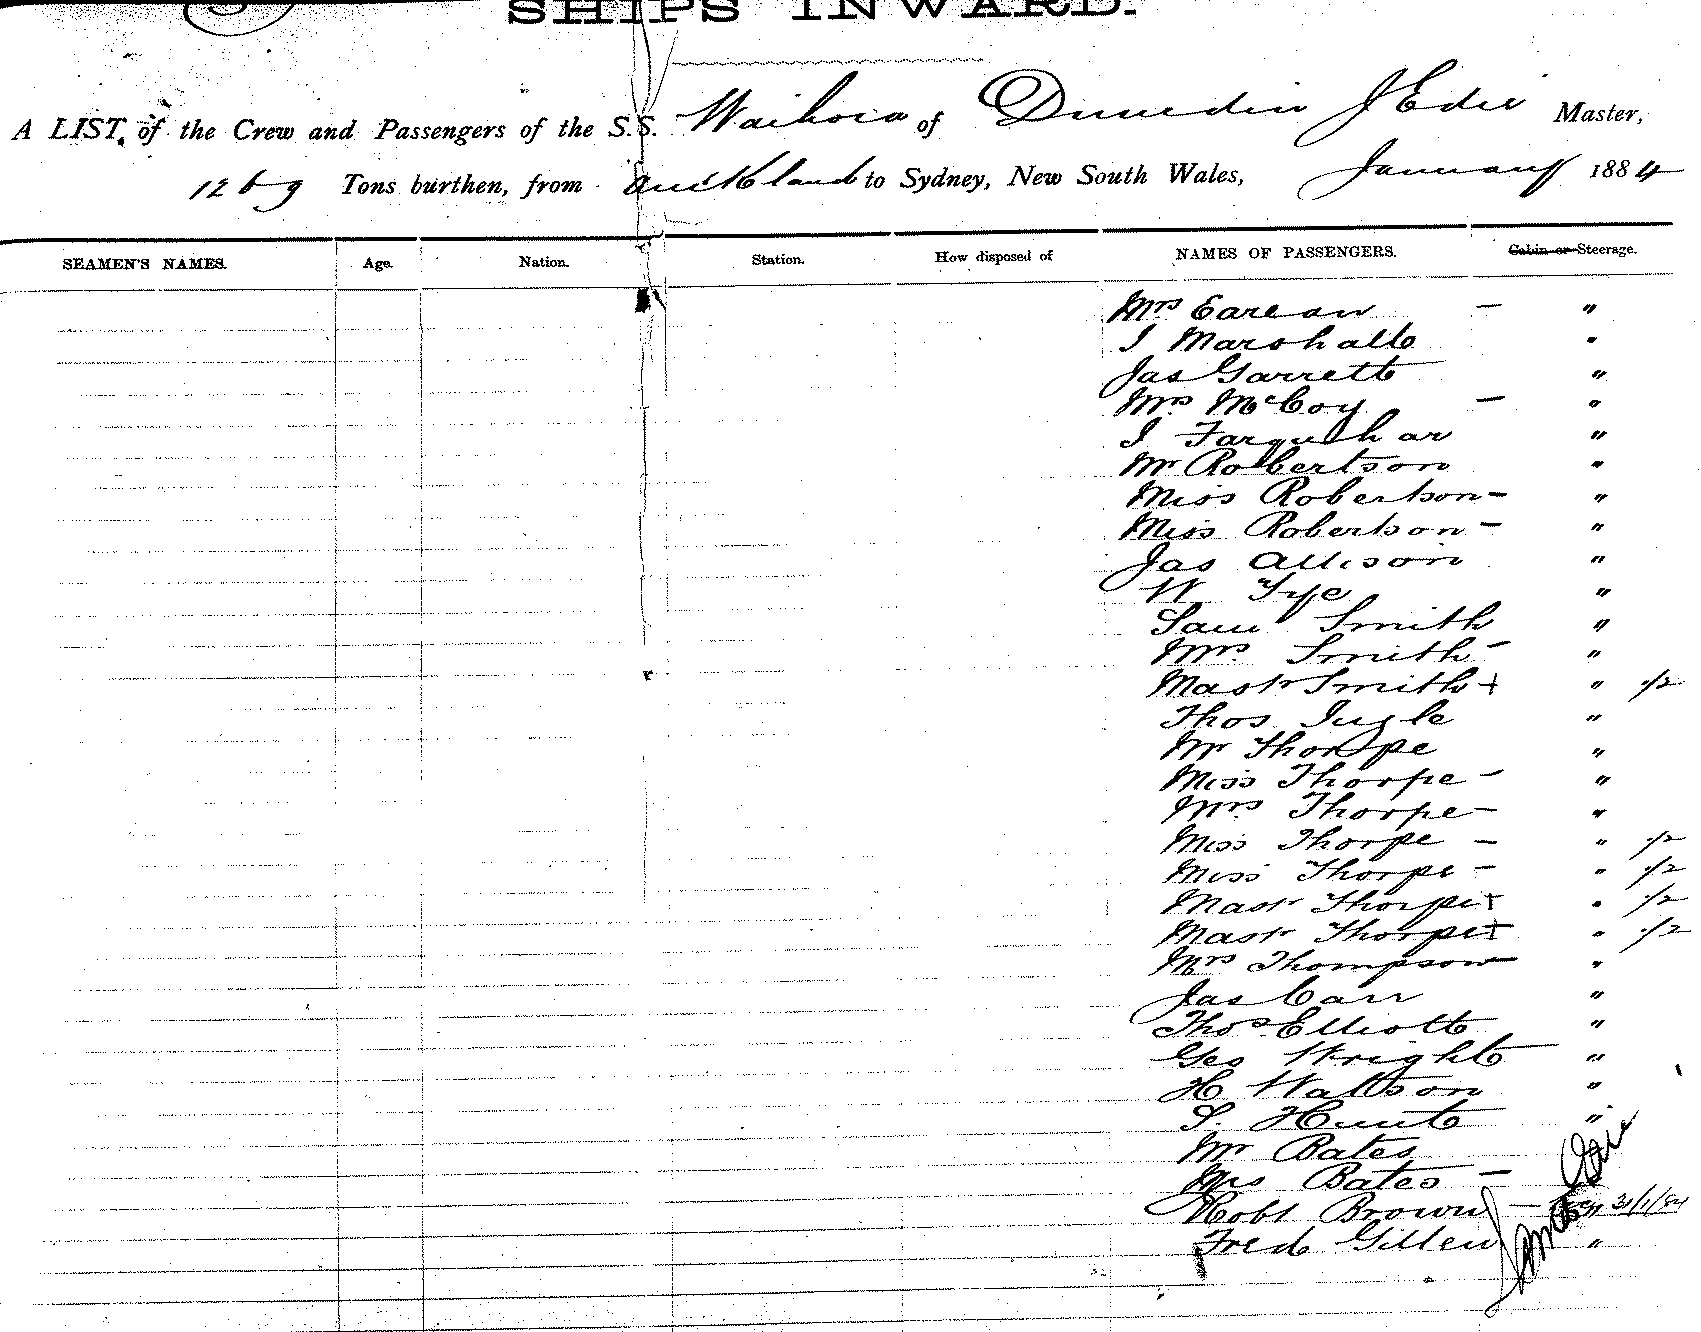 SHIPS INWARD.
A LIST of the Crew and Passengers of the S.S. Waihora of Dunedin J Edie Master,
1269 Tons burthen, from Auckland to Sydney, New South Wales, January 1884
SEAMEN'S NAMES. Age. Nation. Station. How disposed of NAMES OF PASSENGERS. Cabin or Steerage.
Mrs Earean — "
J Marshall "
Jas Garrett "
Mrs McCoy — "
J Farquhar "
Mr Robertson "
Miss Robertson — "
Miss Robertson — "
Jas Allison "
W Tye "
Sam Smith "
Mrs Smith — "
Mastr Smith + " 1/2
Thos Ingle "
Mr Thorpe "
Miss Thorpe — "
Mrs Thorpe — "
Miss Thorpe — " 1/2
Miss Thorpe — " 1/2
Mastr Thorpe + " 1/2
Mastr Thorpe + " 1/2
Mrs Thompson — "
Jas Carr "
Thos Elliott "
Geo Wright "
H Wattson "
S. Hunt "
Mr Bates
Mrs Bates —
Robt Brown — " 31/1/84
Fred Gillen "